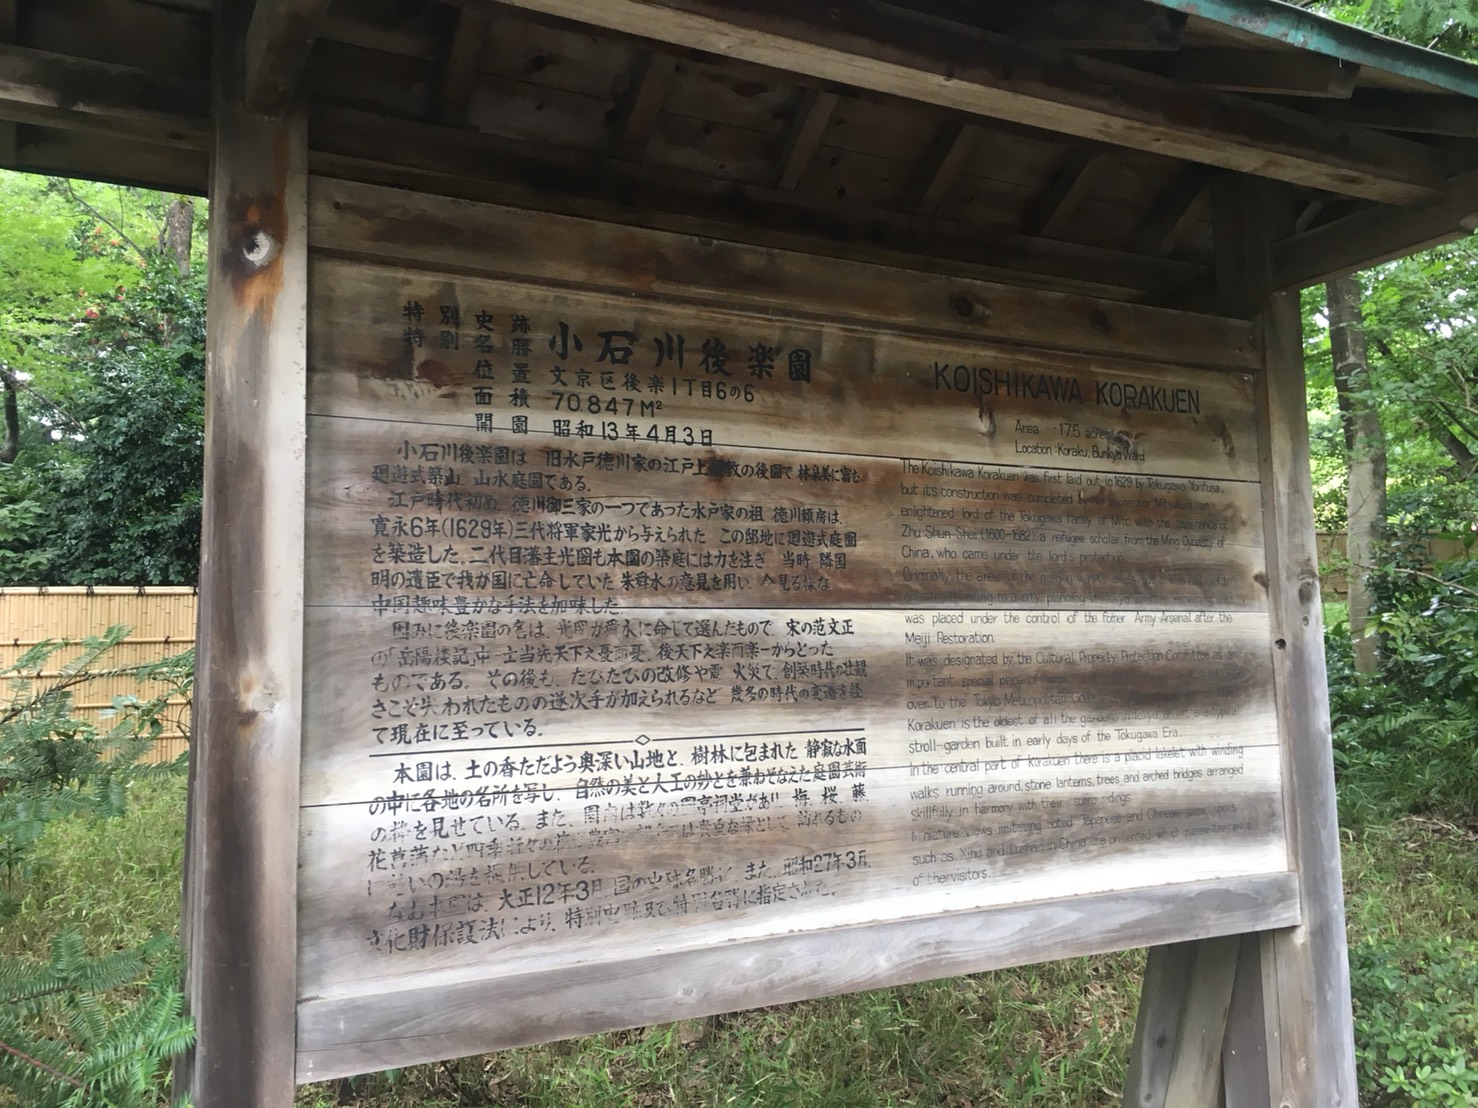 特別史跡
特別名勝
小石川後楽園
位置 文京区後楽1丁目6の6
面積 70.847M²
開園 昭和13年4月3日
小石川後楽園は 旧水戸徳川家の江戸上 の後園で 林泉美に富む
廻遊式築山 山水庭園である。
江戸時代初め 徳川御三家の一つであった水戸家の祖 徳川頼房は、
寛永6年(1629年)三代将軍家光から与えられた この邸地に廻遊式庭園
を築造した。二代目藩主光圀も本園の築庭には力を注ぎ 当時 隣国
明の遺臣で我が国に亡命していた 朱舜水の意見を用い 今見る様な
中国趣味豊かな手法を加味した
因みに後楽園の名は、光圀が舜水に命じて選んだもので 宋の范文正
の「岳陽楼記」中一士当先天下之憂而憂、後天下之楽而楽ーからとった
ものである。 その後も、たびたびの改修や震 火災て 創築時代の壮観
さこそ失われたものの逐次手が加えられるなど 幾多の時代の変遷を経
て現在に至っている。
本園は、土の香ただよう奥深い山地と、樹林に包まれた 静寂な水面
の中に各地の名所を写し、自然の美と人工の妙とを兼ねそなえた庭園芸術
の粋を見せている。また、園内は数々の 祠堂があり 梅、桜、藤、
花菖蒲など四季 訪れるもの
に憩いの場を提供している。
なお本園は、大正12年3月 国の史跡名勝に また、昭和27年3月、
文化財保護法により、特別史跡及び特別名勝に指定された。
KOISHIKAWA KORAKUEN
Area : 17.5 acres
Location : Koraku, Bunkyo Ward
The Koishikawa Korakuen was first laid out in 1629 by Tokugawa Yorifusa,
but its construction was completed by his successor Mitsukuni, an
enlightened lord of the Tokugawa Family of Mito, with the assistance of
Zhu Shun Shui (1600-1682), a refugee scholar from the Ming Dynasty of
China, who came under the lord's protection.
Originally, the area of the garden was
owing to a city planning
was placed under the control of the former Army Arsenal after the
Meiji Restoration.
It was designated by the Cultural Property Protection Committee as an
important special place of
over to the Tokyo Metropolitan
Korakuen is the oldest of all the gardens in Tokyo and is a typical
stroll-garden built in early days of the Tokugawa Era.
In the central part of Korakuen there is a placid lakelet with winding
walks running around, stone lanterns, trees and arched bridges arranged
skillfully in harmony with their surroundings.
Miniature views imitating noted Japanese and Chinese scenic spots
such as Xihu and Lushan in China are presented which please the eyes
of the visitors.